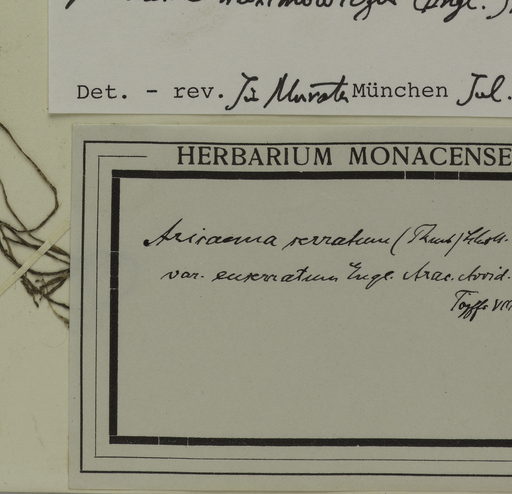 maximowiczii (Engl.)
Det. - rev. Jin Murata München Jul.
HERBARIUM MONACENSE
Arisaema serratum (Thunb) Schott.
var. euserratum Engl. Arac. Aroid.